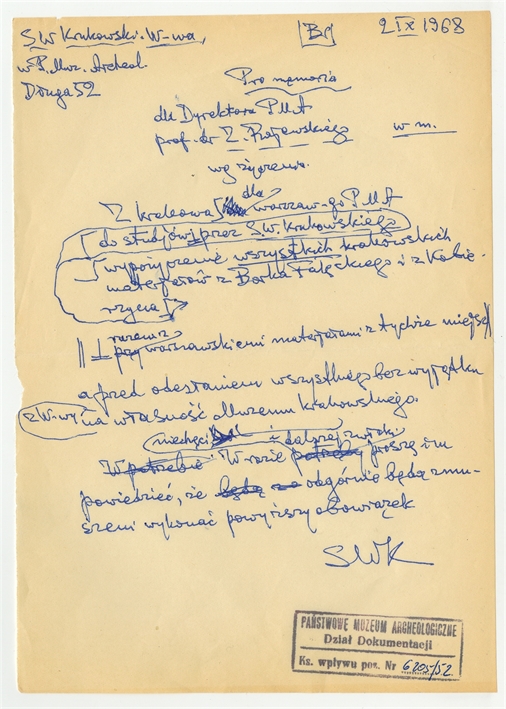 SW Krukowski. W-wa,
w P. Muz. Archeol.
Długa 52
[Br]
2 IX 1968
Pro memoria
dla Dyrektora P.M.A
prof. dr Z. Rajewskiego
w m.
wg życzenia.
Z Krakowa dla warszaw-go P.M.A
do studjów przez S.W. Krukowskiego
wypożyczenie wszystkich krakowskich
materjałów z Borka Fałęckiego i z Kobie-
rzyna
razem z
przy warszawskiemi materjałami z tychże miejsc
a przed odesłaniem wszystkiego bez wyjątku
z W-wy na własność Muzeum krakowskiego.
niechęci i dalszej zwłoki
W potrzebie W razie potrzeby proszę im
powiedzieć, że będą odgórnie będą zmu-
szeni wykonać powyższy obowiązek
SWK
PAŃSTWOWE MUZEUM ARCHEOLOGICZNE
Dział Dokumentacji
Ks. wpływu poz. Nr 6205/52